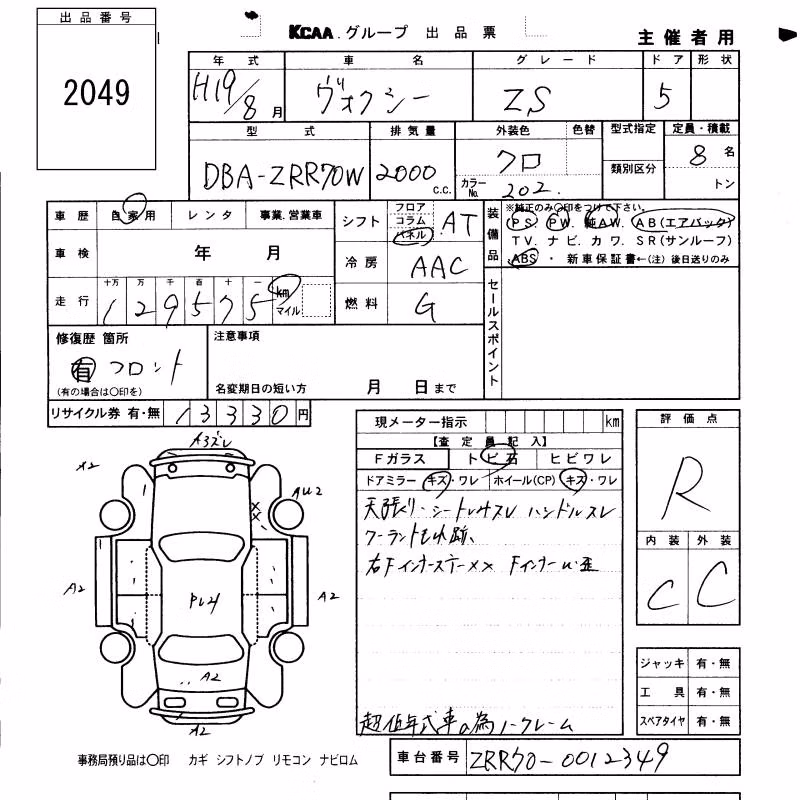 出品番号
2049
KCAA.グループ 出品票
主催者用
年式 車名 グレード ドア 形状
H19/8月 ヴォクシー ZS 5
型式 排気量 外装色 色替 型式指定 定員・積載
DBA-ZRR70W 2000 c.c. クロ カラーNo. 202 類別区分 8名
トン
車歴 自家用 レンタ 事業.営業車
シフト フロア コラム パネル AT
装備品 ※純正のみ〇印をつけて下さい。
PS. PW. 純AW. AB(エアバッグ)
TV. ナビ. カワ. SR(サンルーフ)
ABS ・ 新車保証書←(注) 後日送りのみ
車検 年 月
冷房 AAC
走行 十万 万 千 百 十 一
129575 km マイル
燃料 G
セールスポイント
修復歴 箇所
有 フロント
(有の場合は〇印を)
注意事項
名変期日の短い方 月 日まで
リサイクル券 有・無 13330円
現メーター指示 km
【査定員記入】
Fガラス トビ石 ヒビワレ
ドアミラー キズ・ワレ ホイール(CP) キズ・ワレ
天張り、シートレサスレ ハンドルスレ
クーラントもれ跡、
右FインナーステーXX Fインナー
超低年式車の為ノークレーム
評価点
R
内装 外装
C C
A2
A2
A2
A2
A2
ジャッキ 有・無
工具 有・無
スペアタイヤ 有・無
事務局預り品は〇印 カギ シフトノブ リモコン ナビロム
車台番号 ZRR70-0012349